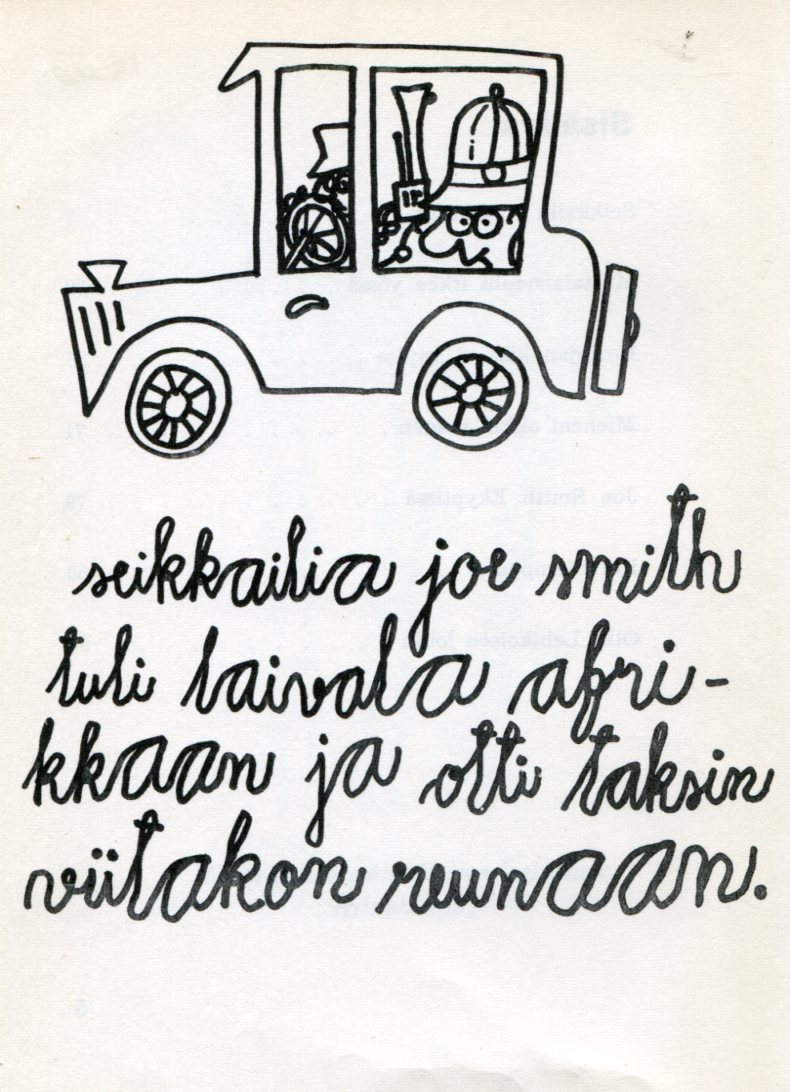 seikkailia joe smith
tuli laivala afri-
kkaan ja otti taksin
viitakon reunaan.